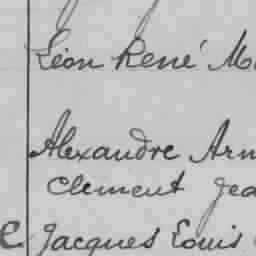 Léon René M
Alexandre Arm
Clement Jea
e Jacques Louis